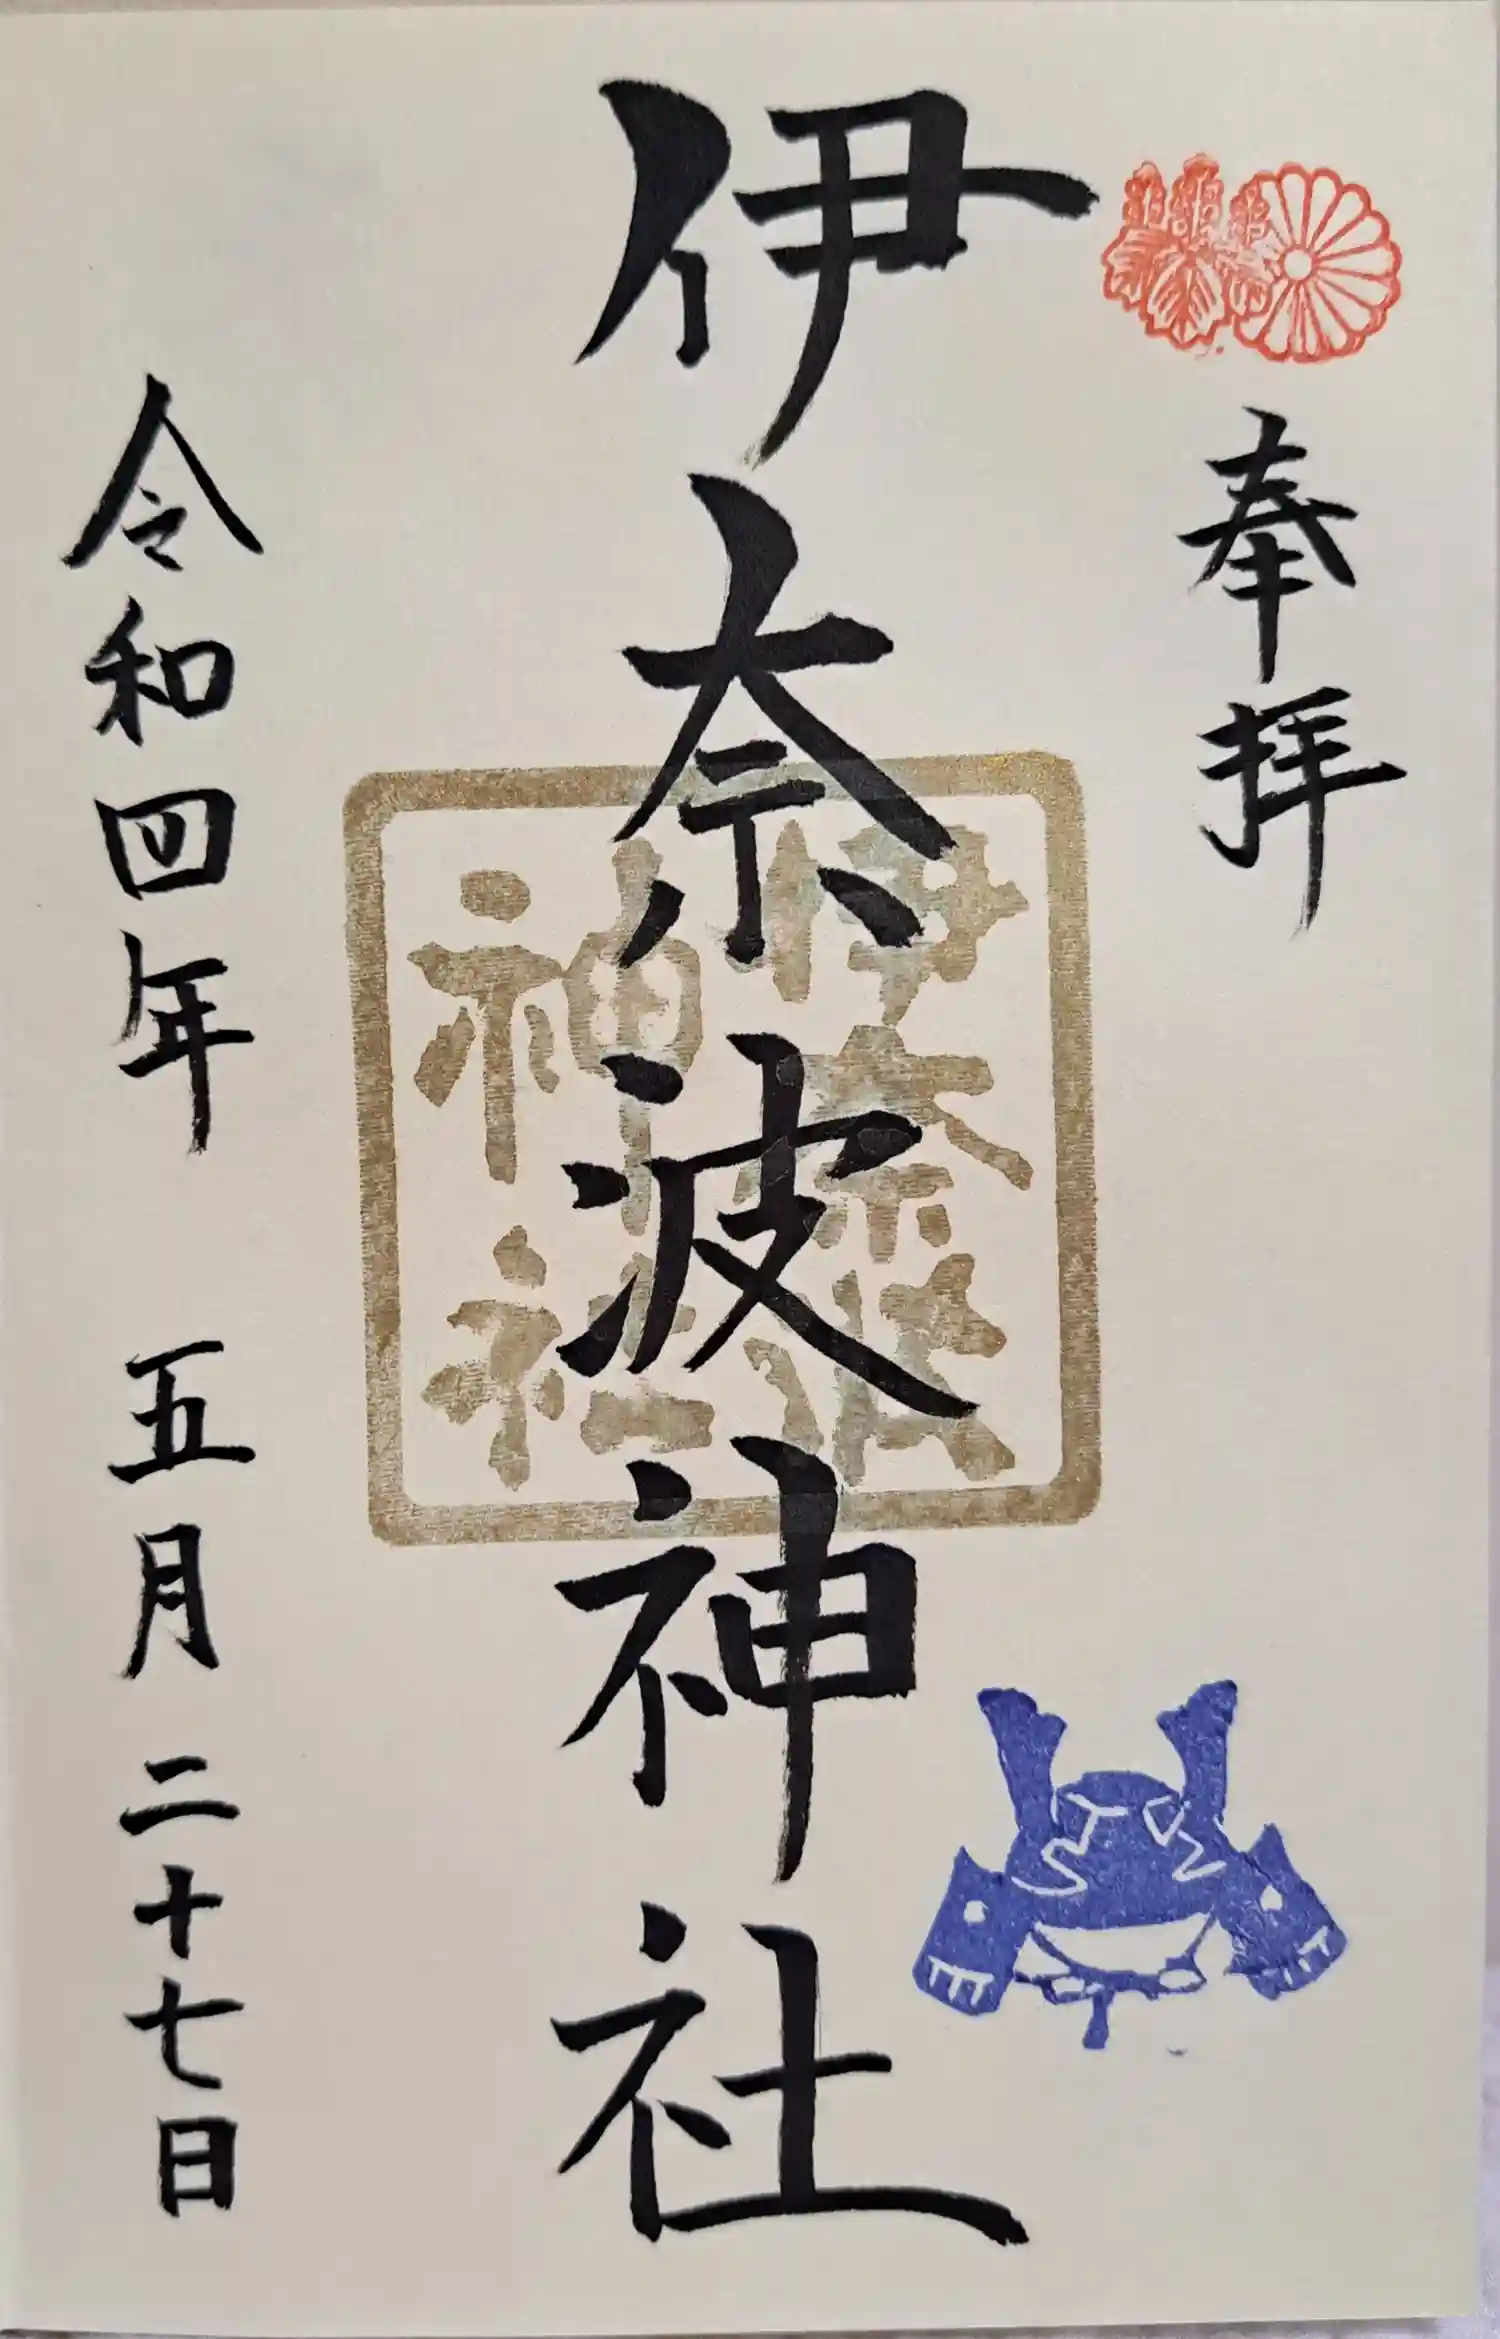 奉拝
伊奈波神社
伊奈波
神社
令和四年 五月二十七日